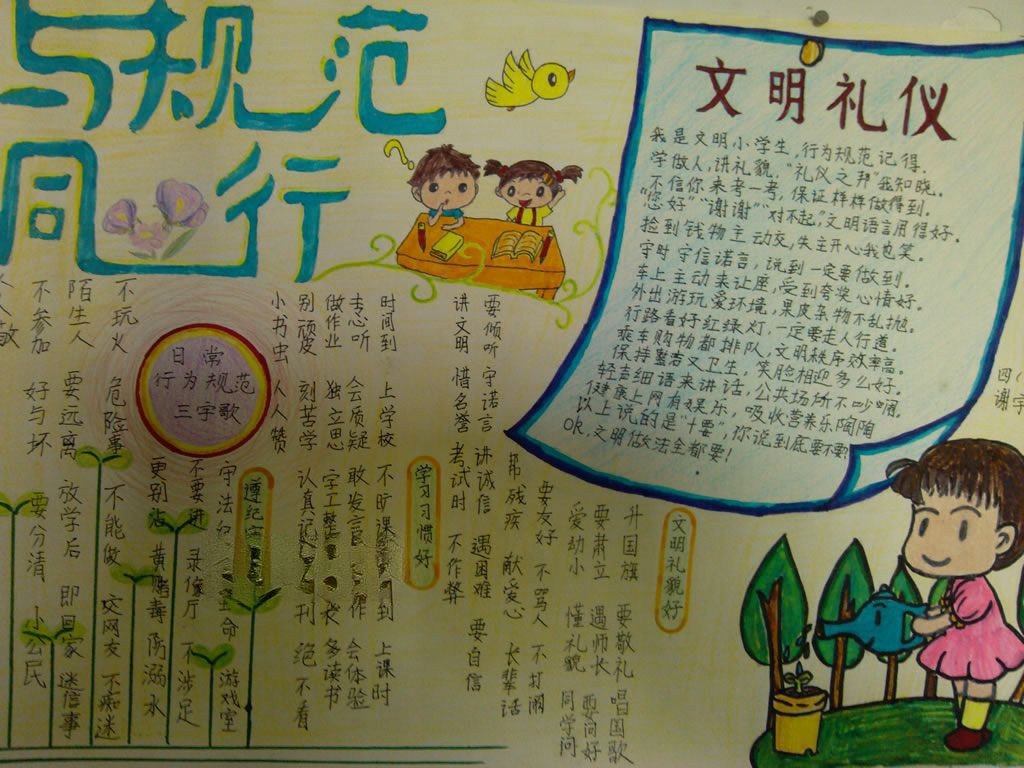 与规范
同行
文明礼仪
我是文明小学生,行为规范记得.
学做人,讲礼貌,"礼仪之邦"我知晓.
不信你来考一考,保证样样做得到.
"您好""谢谢""对不起",文明语言用得好.
捡到钱物主动交,失主开心我也笑.
守时守信诺言,说到一定要做到.
车上主动来让座,受到夸奖心情好.
外出游玩爱环境,果皮杂物不乱抛.
行路看好红绿灯,一定要走人行道.
乘车购物都排队,文明秩序效率高.
保持整洁又卫生,笑脸相迎多么好.
轻声细语来讲话,公共场所不吵闹.
健康上网有娱乐,吸收营养乐陶陶
以上说的是"十要",你说到底要不要?
OK,文明做法全都要!
四(
谢宇
日常
行为规范
三字歌
文明礼貌好
升国旗 要敬礼 唱国歌
要肃立 遇师长 要问好
爱幼小 懂礼貌 同学间
要友好 不骂人 不打闹
帮残疾 献爱心 长辈话
要倾听 守诺言 讲诚信 遇困难 要自信
讲文明 惜名誉 考试时 不作弊
学习习惯好
时间到 上学校 不旷课 到 上课时
专心听 会质疑 敢发言 会 作 会体验
做作业 独立思 字工整 多读书
别顽皮 刻苦学 认真记 刊 绝不看
小书虫 人人赞
遵纪守
守法纪 生命 游戏室
不要进 录像厅 不涉足
更别沾 黄赌毒 防溺水
不玩火 危险事 不能做 交网友 不痴迷
陌生人 要远离 放学后 即回家 迷信事
不参加 好与坏 要分清 小公民
人人敬